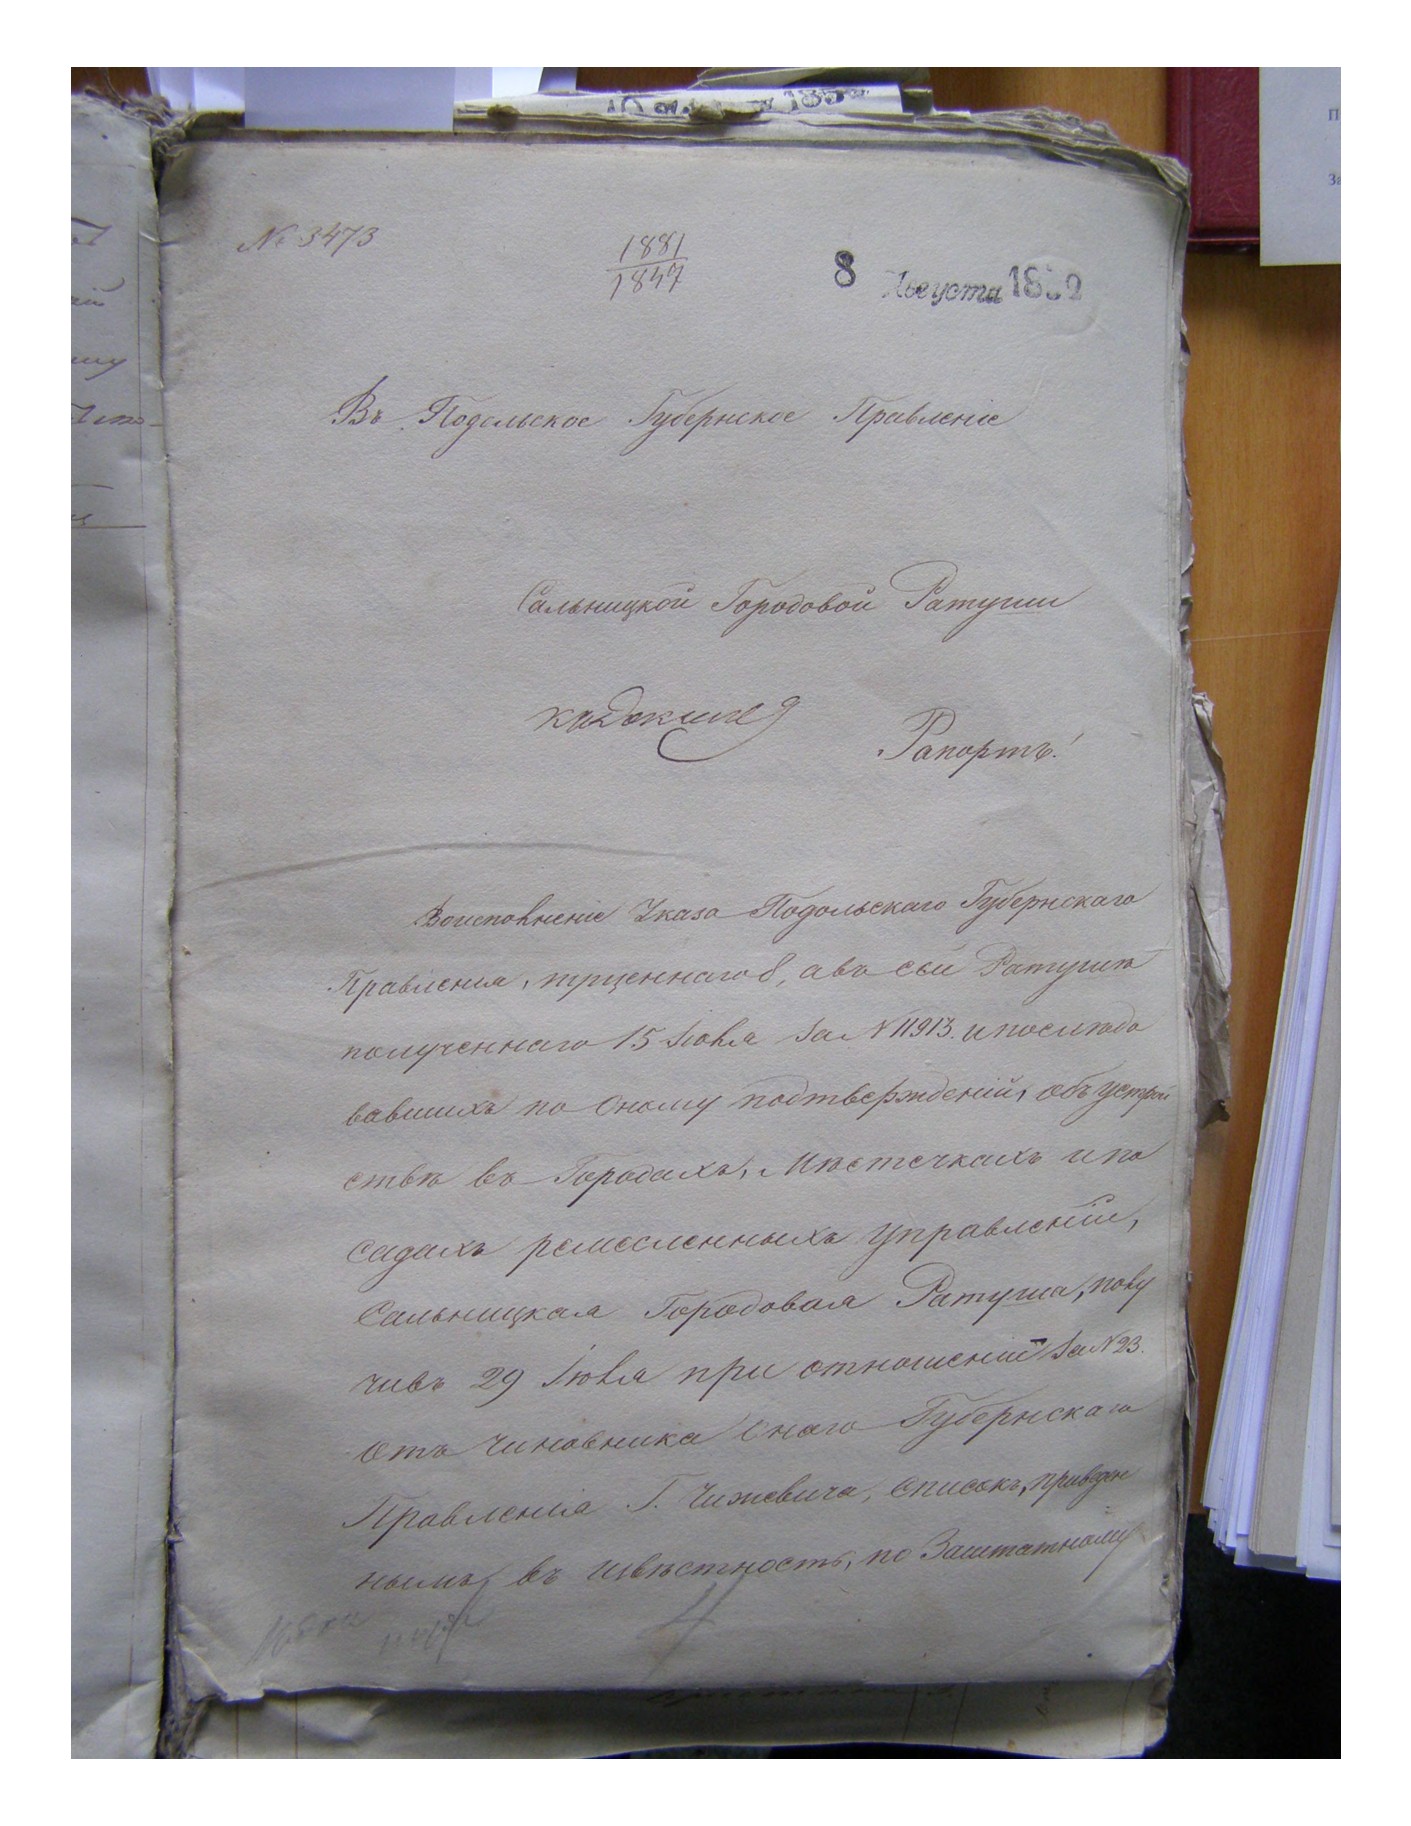 № 3473
1881
1847
8 Августа 1852
Въ Подольское Губернское Правленіе
Сальницкой Городовой Ратуши
Рапортъ!
Воисполненіе Указа Подольскаго Губернскаго
Правленія, авъ сей Ратушѣ
полученнаго 15 Іюля за N 11913. и послѣдо
вавшихъ по оному подтвержденій, объ устрой
ствѣ въ Городахъ, Мѣстечкахъ и по
садахъ ремесленныхъ управленій,
Сальницкая Городовая Ратуша, полу
чивъ 29 Іюля при отношеніи за N 23.
отъ Чиновника онаго Губернскаго
Правленія Г. Чижевича, списокъ, приведен
нымъ въ извѣстность, по Заштатному